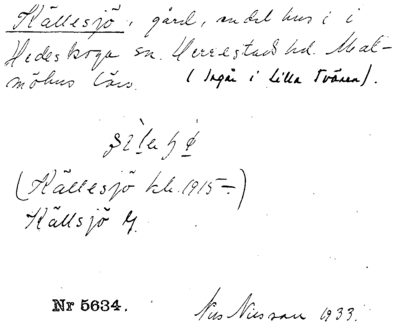 Källesjö, gård, undet hus i i
Hedeskoga sn. Herrestads hd. Mal-
möhus län. (Ingår i Lilla Tvären).
(Källesjö kb. 1915-)
Källsjö
Nr 5634. Nils Nilsson 1933.